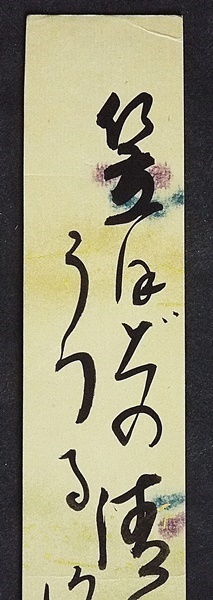 笠ほどの清
うつる